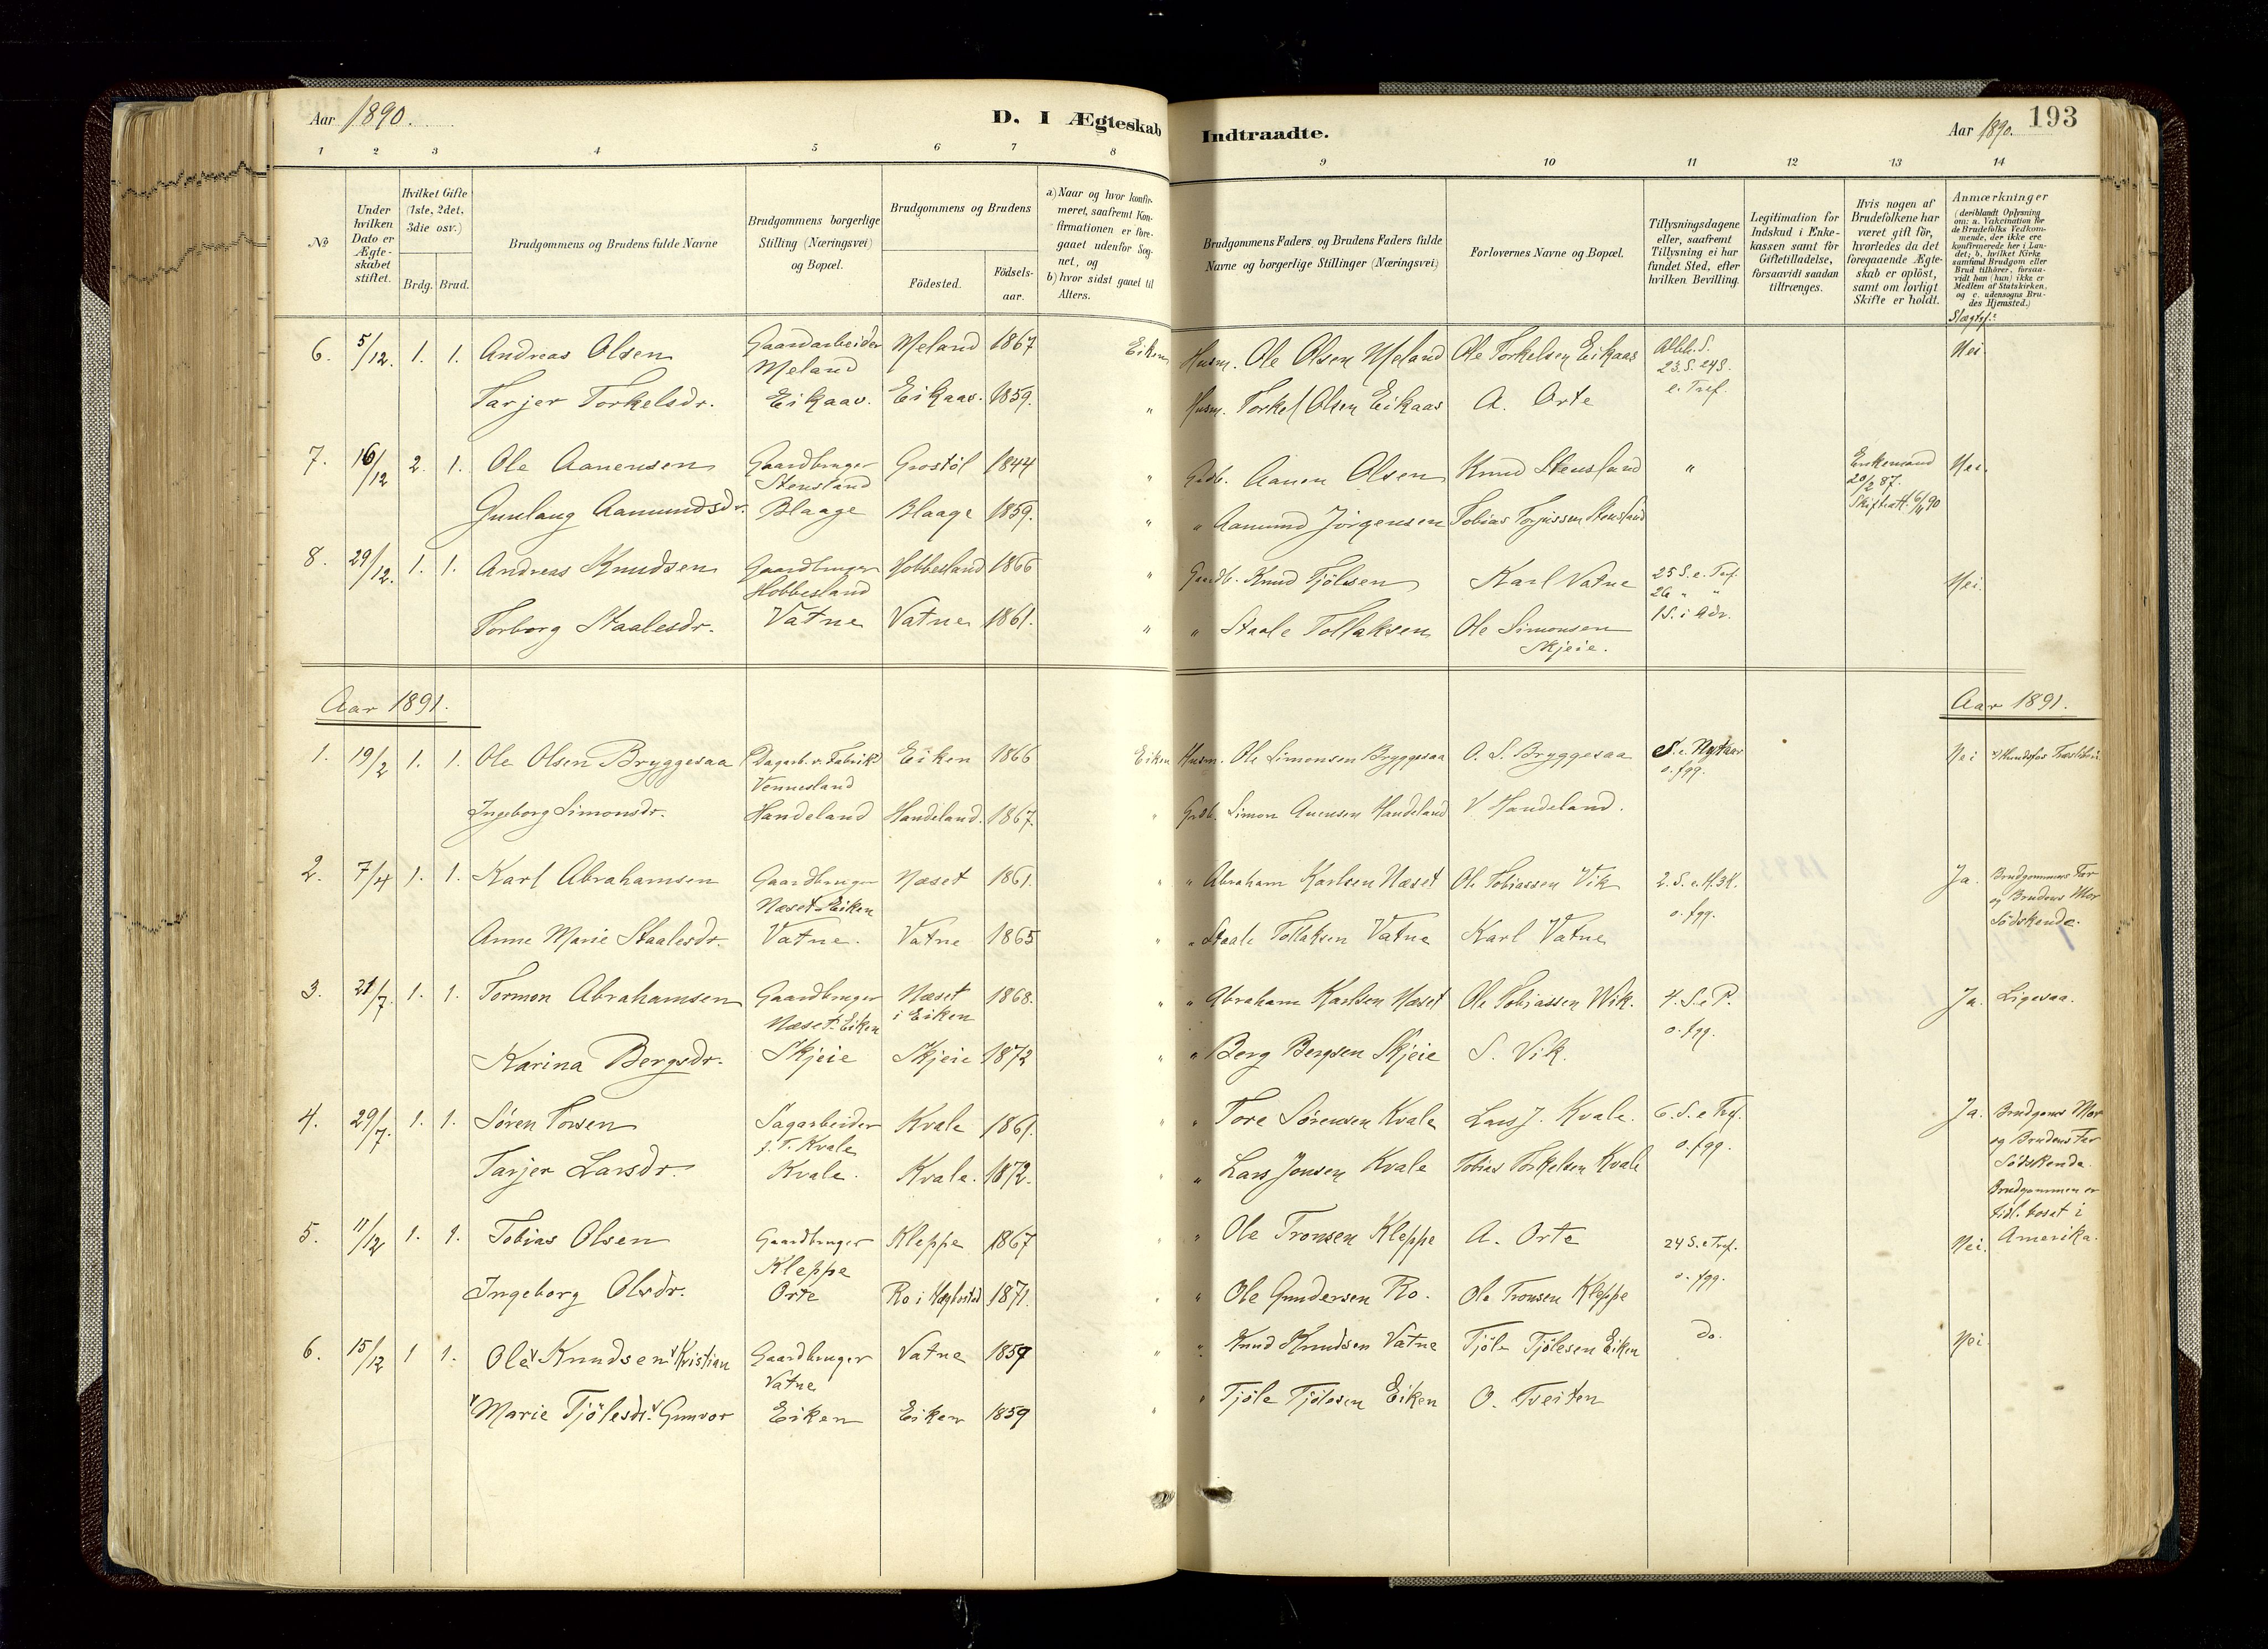 Aar 1890.
D. I Ægteskab Indtraadte.
Aar 1890. 193
1 2 3 4 5 6 7 8 9 10 11 12 13 14
№
Under hvilken Dato er Ægteskabet stiftet.
Hvilket Gifte (1ste, 2det, 3die osv.)
Brdg. Brud.
Brudgommens og Brudens fulde Navne
Brudgommens borgerlige Stilling (Næringsvei) og Bopæl.
Brudgommens og Brudens
Födested.
Födselsaar.
a) Naar og hvor konfirmeret, saafremt Konfirmationen er foregaaet udenfor Sognet, og
b) hvor sidst gaaet til Alters.
Brudgommens Faders og Brudens Faders fulde Navne og borgerlige Stillinger (Næringsvei)
Forlovernes Navne og Bopæl.
Tillysningsdagene eller, saafremt Tillysning ei har fundet Sted, efter hvilken Bevilling.
Legitimation for Indskud i Enkekassen samt for Giftetilladelse, forsaavidt saadan tiltrænges.
Hvis nogen af Brudefolkene har været gift för, hvorledes da det foregaaende Ægteskab er oplöst, samt om lovligt Skifte er holdt.
Anmærkninger (deriblandt Oplysning om: a. Vakcination for de Brudefolks Vedkommende, der ikke ere konfirmerede her i Landet; b. hvilket Kirkesamfund Brudgom eller Brud tilhörer, forsaavidt han (hun) ikke er Medlem af Statskirken, og c. udensogns Brudes Hjemsted.)
Slægtsf.:
6. 5/12. 1. 1. Andreas Olsen Gaardarbeider Meland Meland 1867 Eiken Husm. Ole Olsen Meland Ole Torkelsen Eikaas 23. S. 24 S. e. Tref. Nei
Tarjer Torkelsdr. Eikaas. Eikaas. 1859. " Husm. Torkel Olsen Eikaas A. Orte
7. 16/12 2. 1. Ole Aanensen Gaardbruger Stensland Grostöl 1844 " Gadb. Aanen Olsen Knud Stensland " Enkemand 20/2 87. Nei.
Gunlaug Aamundsdr. Blaage Blaage 1859. " " Aamund Jörgensen Tobias Torjussen Stensland
8. 29/12. 1. 1. Andreas Knudsen Gaardbruger Hobbesland Hobbesland 1866 " Gaardb. Knud Tjölsen Karl Vatne 25 S. e. Tref. 26 " " 1 S. i Adv. Nei.
Torborg Staalesdr. Vatne Vatne 1861. " " Staale Tollaksen Ole Simonsen Skjeie.
Aar 1891. Aar 1891.
1. 19/2 1. 1. Ole Olsen Bryggesaa Dagarb. v. Fabrik Vennesland Eiken 1866 Eiken Husm. Ole Simonsen Bryggesaa O. S. Bryggesaa S. e. Nytaar o. fgg. Nei
Ingeborg Simonsdr. Handeland Handeland. 1867. " Gadb. Simon Anensen Handeland V. Handeland.
2. 7/4 1. 1. Karl Abrahamsen Gaardbruger Næset Eiken Næset 1861. " " Abraham Karlsen Næset Ole Tobiassen Vik 2. S. e. H.3K. o. fgg. Ja. Brudgommens Far og Brudens Mor Södskende.
Anne Marie Staalesdr. Vatne. Vatne 1865 " " Staale Tollaksen Vatne Karl Vatne
3. 21/7. 1. 1. Tormon Abrahamsen Gaardbruger Næset Eiken Næset i Eiken 1868. " " Abraham Karlsen Næset Ole Tobiassen Wik. 4. S. e P. o. fgg. Ja. Ligesaa.
Karina Bergsdr. Skjeie Skjeie 1872 " " Berg Bergsen Skjeie S. Vik.
4. 29/7. 1. 1. Sören Torsen Sagarbeider f. T. Kvale Kvale 1861. " " Tore Sörensen Kvale Lars J. Kvale. 6. S. e Tref. o. fgg. Ja. Brudgoms Mor og Brudens Far Södskende. Brudgommen er tidl. bosat i Amerika.
Tarjer Larsdr. Kvale. Kvale. 1872. " " Lars Jonsen Kvale Tobias Torkelsen Kvale
5. 11/12 1. 1. Tobias Olsen Gaardbruger Kleppe Kleppe 1867 " " Ole Tronsen Kleppe A. Orte 24 S. e Tref. o. fgg. Nei.
Ingeborg Olsdr. Orte Ro i Hægbostad 1871. " " Ole Gundersen Ro. Ole Tronsen Kleppe
6. 15/12 1 1. Ole Knudsen Kristian Gaardbruger Vatne Vatne 1859 " " Knud Knudsen Vatne Tjöle Tjölesen Eiken Do. Nei.
Marie Tjölesdr. Gunvor Eiken Eiken 1859 " " Tjöle Tjölesen Eiken O. Tveiten